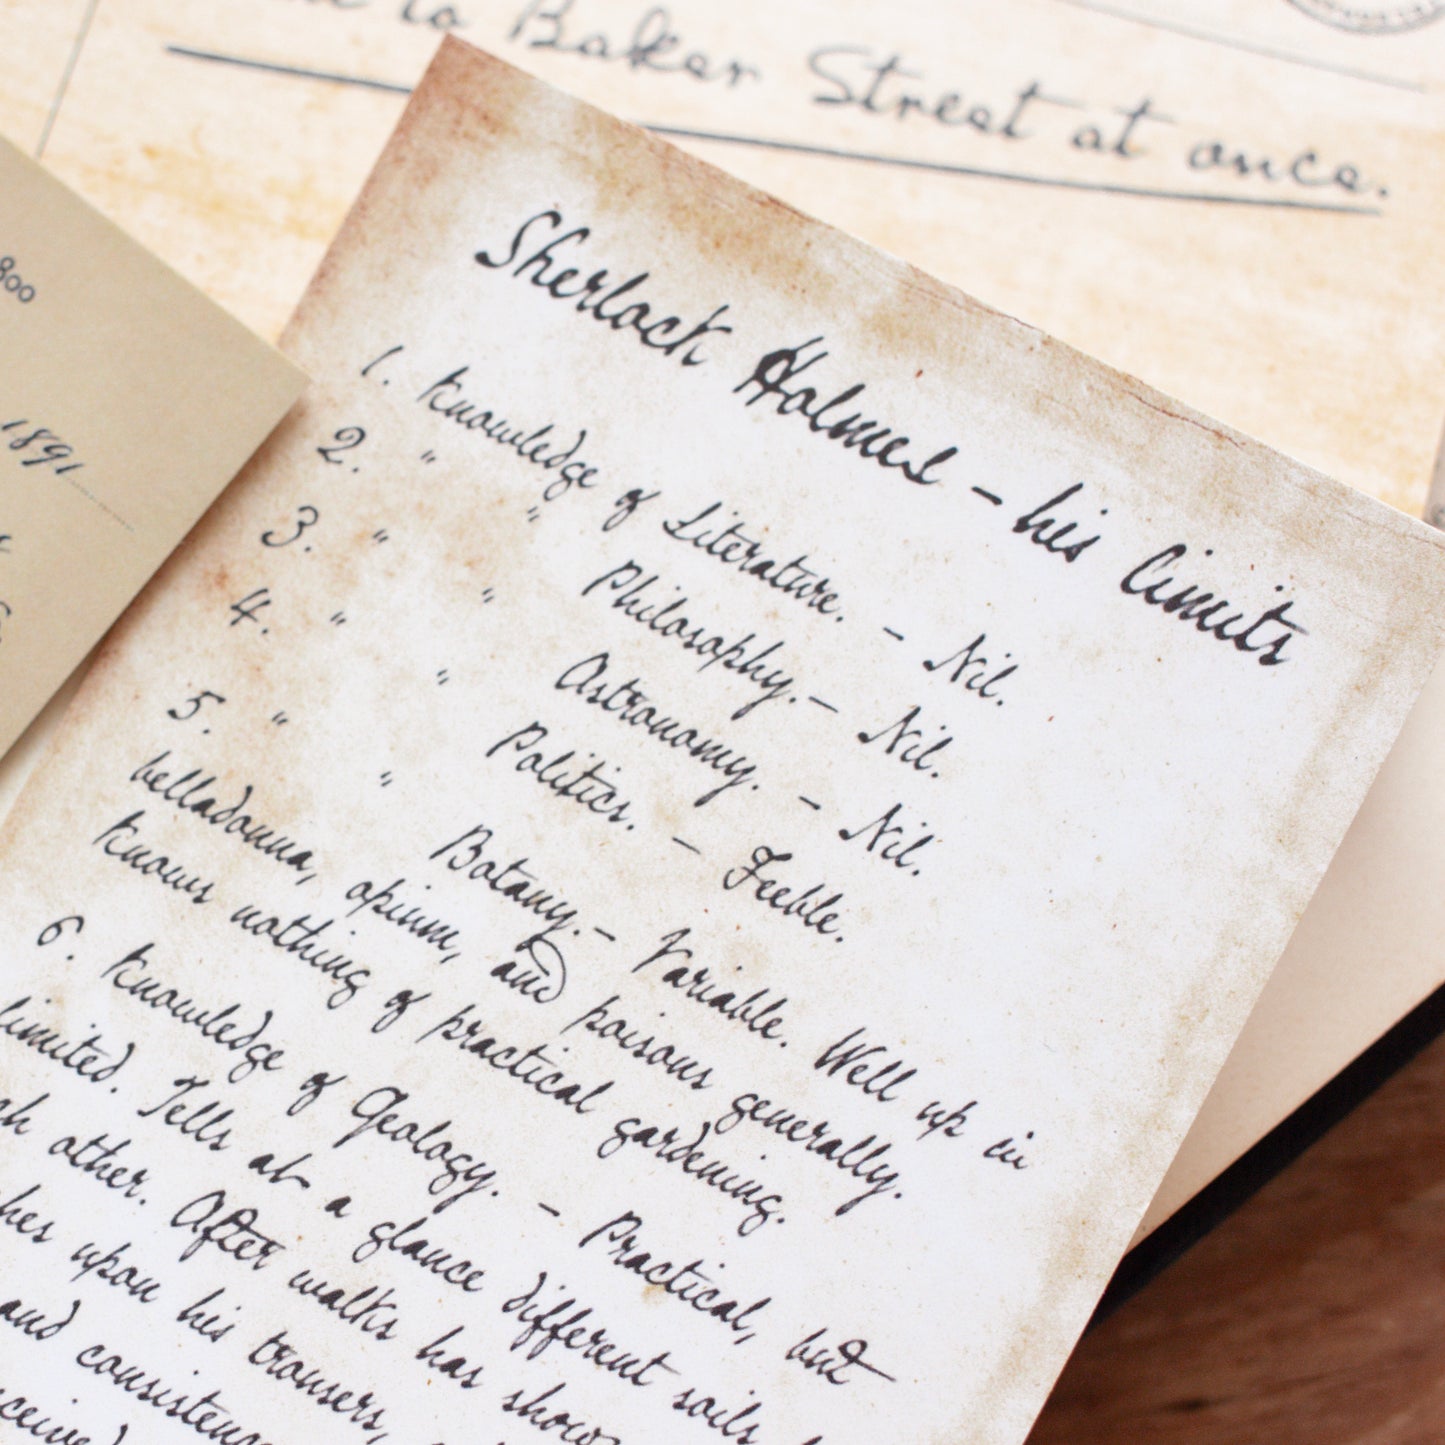 to Baker Street at once.
800
1891
Sherlock Holmes – his limits
1. Knowledge of Literature. – Nil.
2. " " Philosophy. – Nil.
3. " " Astronomy. – Nil.
4. " " Politics. – Feeble.
5. " " Botany. – Variable. Well up in
belladonna, opium, and poisons generally.
Knows nothing of practical gardening.
6. Knowledge of Geology. – Practical, but
limited. Tells at a glance different soils
other. After walks has show
upon his trousers,
and consistenc